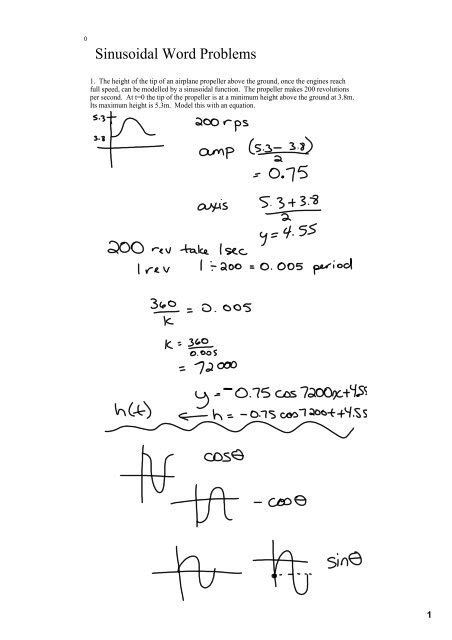 0
Sinusoidal Word Problems
1. The height of the tip of an airplane propeller above the ground, once the engines reach
full speed, can be modelled by a sinusoidal function. The propeller makes 200 revolutions
per second. At t=0 the tip of the propeller is at a minimum height above the ground at 3.8m.
Its maximum height is 5.3m. Model this with an equation.
5.3
3.8
200 rps
amp (5.3 - 3.8)
2
= 0.75
axis 5.3 + 3.8
2
y = 4.55
200 rev take 1sec
1 rev 1 ÷ 200 = 0.005 period
360
k
= 0.005
k = 360
0.005
= 72000
y = -0.75 cos 7200x + 4.55
h(t) ← h = -0.75 cos 7200t + 4.55
cosθ
- cosθ
sinθ
1